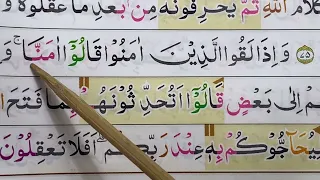 كَلَامَ اللّٰهِ ثُمَّ يُحَرِّفُوْنَهٗ مِنْۢ بَعْدِ مَا عَقَلُوْهُ وَ
٧٥ وَاِذَا لَقُوا الَّذِيْنَ اٰمَنُوْا قَالُوْۤا اٰمَنَّا ۖۚ وَ
هُمْ اِلٰى بَعْضٍ قَالُوْۤا اَتُحَدِّثُوْنَهُمْ بِمَا فَتَحَ ا
لِيُحَآجُّوْكُمْ بِهٖ عِنْدَ رَبِّكُمْ ؕ اَفَلَا تَعْقِلُوْنَ